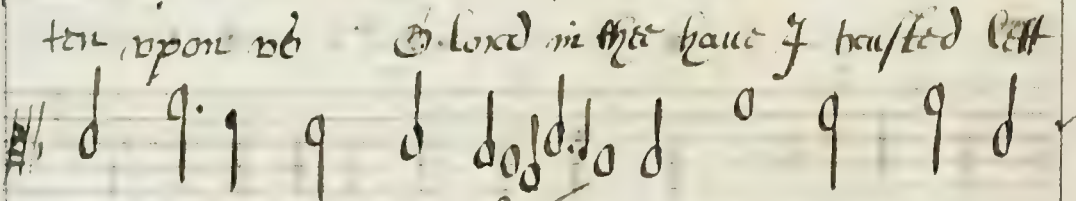 ten vpon vs O lord in thee haue I trusted lett